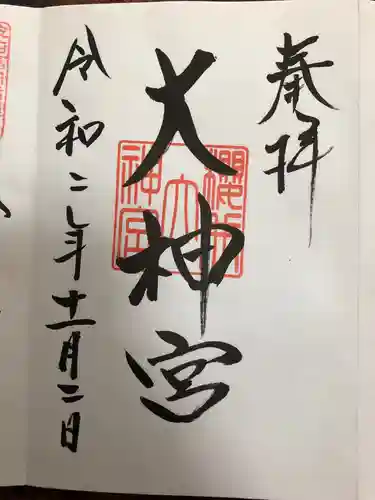 奉拝
大神宮
櫻木
大
神宮
令和二年十一月二日